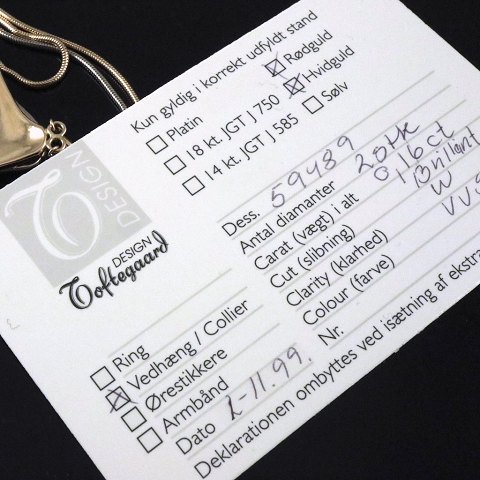 Kun gyldig i korrekt udfyldt stand
Platin
Rødguld
18 kt. JGT J 750
Hvidguld
14 kt. JGT J 585
Sølv
DESIGN
DESIGN
Toftegaard
Dess. 59489
Antal diamanter 20 stk
Carat (vægt) i alt 0,16 ct
Cut (slibning) Brillant
Clarity (klarhed) W
Colour (farve) VVS
Nr.
Ring
Vedhæng / Collier
Ørestikkere
Armbånd
Dato 2-11.99.
Deklarationen ombyttes ved isætning af ekstra